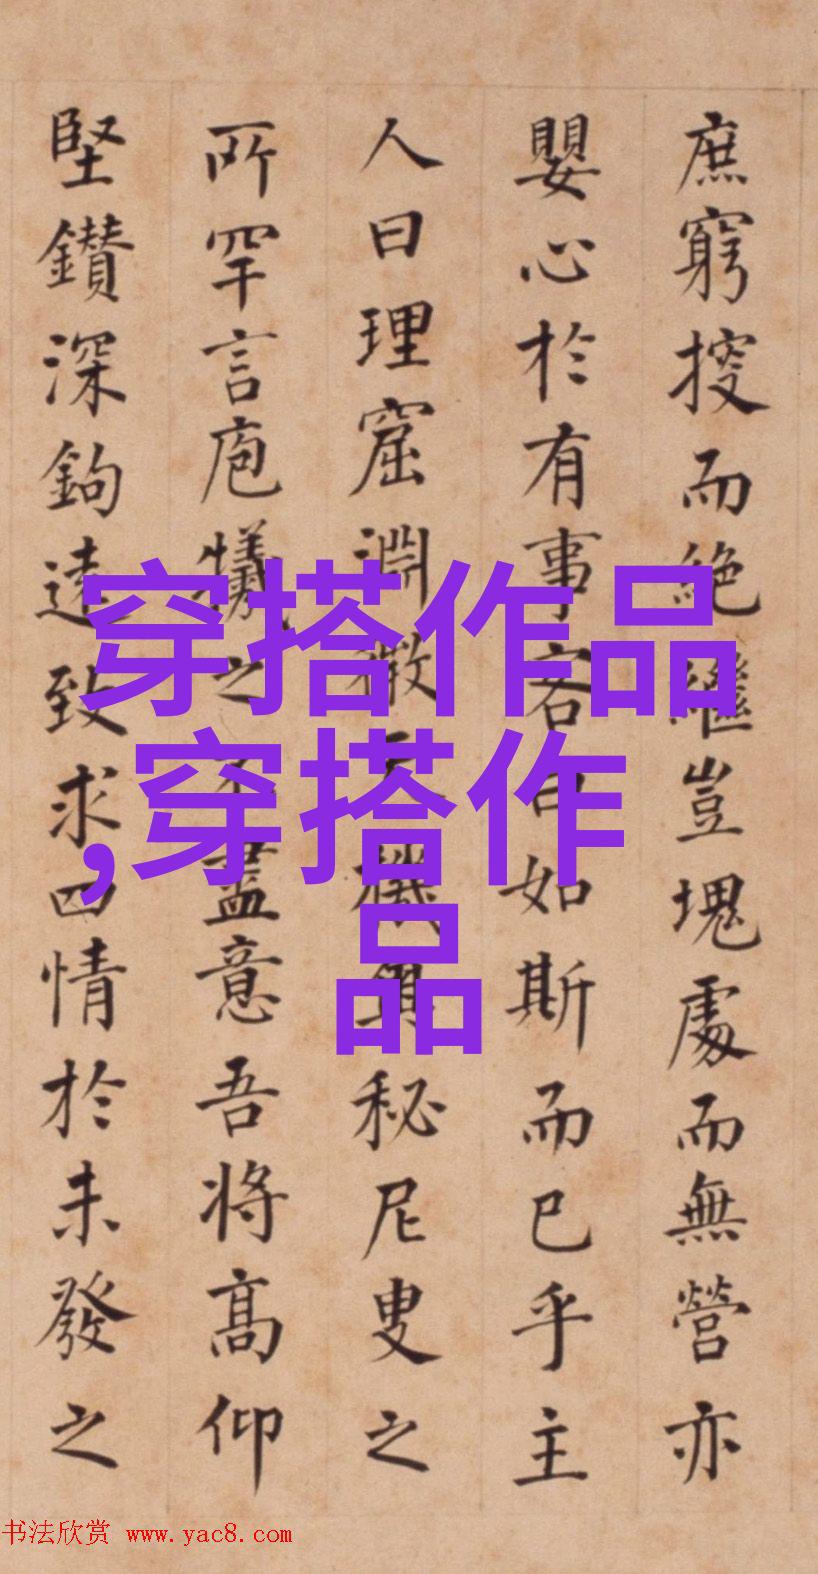 庶窮搜而絶繼豈塊處而無營亦
嬰心於有事客曰如斯而已乎主
人曰理窟淵微天機奧秘尼叟之
所罕言庖犧之不盡意吾將高仰
堅鑽深鉤遠致求四情於未發之
穿搭作品
,穿搭作
品
书法欣赏 www.yac8.com